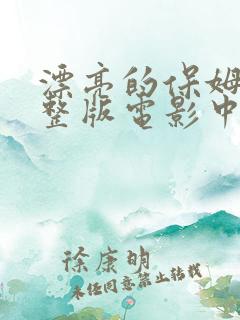 漂亮的保姆
整版电影中
徐康明
未经同意禁止转载